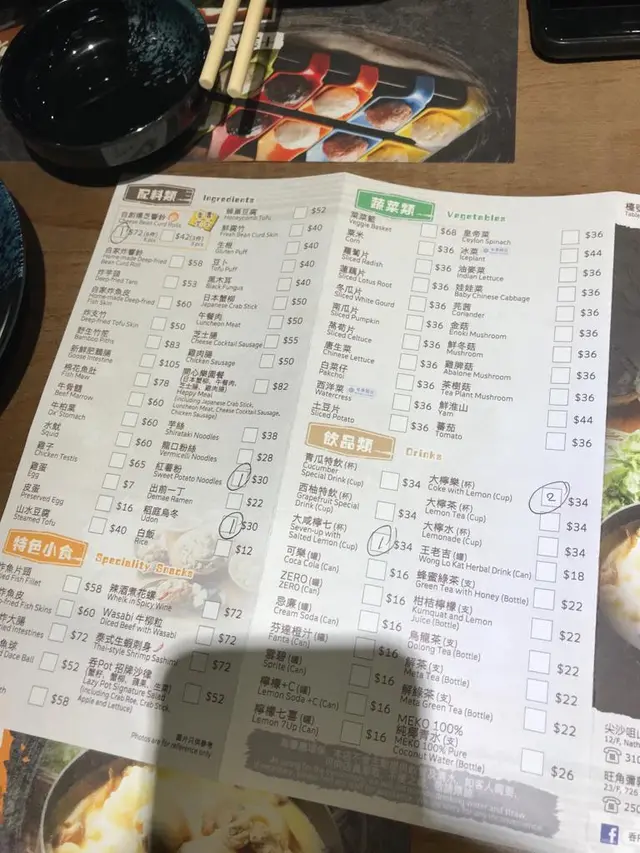 配料類 Ingredients
自創爆芝響鈴
Cheese Bean Curd Rolls
1 $72 $42
自家炸響鈴 $58
Home-made Deep-fried
Bean Curd Roll
炸芋頭 $53
Deep-fried Taro
自家炸魚皮 $60
Home-made Deep-fried
Fish Skin
炸支竹 $50
Deep-fried Tofu Skin
野生竹笙 $83
Bamboo Piths
新鮮肥鵝腸 $105
Goose Intestine
棉花魚肚 $78
Fish Maw
牛骨髓 $60
Beef Marrow
牛柏葉 $60
Ox' Stomach
水魷
Squid
雞子 $65
Chicken Testis
雞蛋 $7
Egg
皮蛋 $16
Preserved
Egg
山水豆腐 $40
Steamed Tofu
蜂巢豆腐 $52
Honeycomb Tofu
鮮腐竹 $40
Fresh Bean Curd Skin
生根 $40
Gluten Puff
豆卜 $40
Tofu Puff
黑木耳 $40
Black Fungus
日本蟹柳 $50
Japanese Crab Stick
午餐肉 $50
Luncheon Meat
芝士腸 $55
Cheese Cocktail Sausage
雞肉腸 $50
Chicken Sausage
開心樂園餐 $82
(日本蟹柳、午餐肉、
芝士腸、雞肉腸)
Happy Meal
(including Japanese Crab Stick,
Luncheon Meat, Cheese Cocktail Sausage,
Chicken Sausage)
芋絲 $38
Shirataki Noodles
龍口粉絲 $28
Vermicelli Noodles
紅薯粉 1 $30
Sweet Potato Noodles
出前一丁 $22
Demae Ramen
稻庭烏冬 1 $30
Udon
白飯 $12
Rice
特色小食 Speciality Snacks
炸魚片頭 $58
Fried Fish Fillet
炸魚皮 $60
Fried Fish Skins
炸大腸 $72
Fried Intestines
魚球 $52
Dace Ball
$58
辣酒煮花螺 $72
Whelk in Spicy Wine
Wasabi 牛柳粒 $72
Diced Beef with Wasabi
泰式生蝦刺身 $72
Thai-style Shrimp Sashimi
吞Pot 招牌沙律 $52
(蟹籽、蟹柳、蘋果、生菜)
Lazy Pot Signature Salad
(including Crab Roe, Crab Stick,
Apple and Lettuce)
圖片只供參考
Photos are for reference only
蔬菜類 Vegetables
菜菜籃 $68
Veggie Basket
粟米 $36
Corn
蘿蔔片 $36
Sliced Radish
蓮藕片 $36
Sliced Lotus Root
冬瓜片 $36
Sliced White Gourd
南瓜片 $36
Sliced Pumpkin
萵筍片 $36
Sliced Celtuce
唐生菜 $36
Chinese Lettuce
白菜仔 $36
Pakchoi
西洋菜 $36
Watercress
土豆片 $36
Sliced Potato
皇帝菜 $36
Ceylon Spinach
冰菜 $44
Iceplant
油麥菜 $36
Indian Lettuce
娃娃菜 $36
Baby Chinese Cabbage
芫茜 $36
Coriander
金菇 $36
Enoki Mushroom
鮮冬菇 $36
Mushroom
雞脾菇 $36
Abalone Mushroom
茶樹菇 $36
Tea Plant Mushroom
鮮淮山 $44
Yam
蕃茄 $36
Tomato
飲品類 Drinks
青瓜特飲(杯) $34
Cucumber
Special Drink (Cup)
西柚特飲(杯) $34
Grapefruit
Special Drink (Cup)
大咸檸七(杯) 1 $34
Seven-up with
Salted Lemon (Cup)
可樂(罐) $16
Coca Cola (Can)
ZERO(罐) $16
ZERO (Can)
忌廉(罐) $16
Cream Soda (Can)
芬達橙汁(罐) $16
Fanta (Can)
雲碧(罐) $16
Sprite (Can)
檸檬+C(罐) $16
Lemon Soda +C (Can)
檸檬七喜(罐) $16
Lemon 7Up (Can)
大檸樂(杯) 2 $34
Coke with Lemon (Cup)
大檸茶(杯) $34
Lemon Tea (Cup)
大檸水(杯) $34
Lemonade (Cup)
王老吉(罐) $18
Wong Lo Kat Herbal Drink (Can)
蜂蜜綠茶(支) $22
Green Tea with Honey (Bottle)
柑桔檸檬(支) $22
Kumquat and Lemon
Juice (Bottle)
烏龍茶(支) $22
Oolong Tea (Bottle)
解茶(支) $22
Meta Tea (Bottle)
解綠茶(支) $22
Meta Green Tea (Bottle)
MEKO 100%
純椰青水(支) $26
MEKO 100% Pure
Coconut Water (Bottle)
尖沙咀
12/F, Nath
310
旺角彌敦
23/F, 726
250